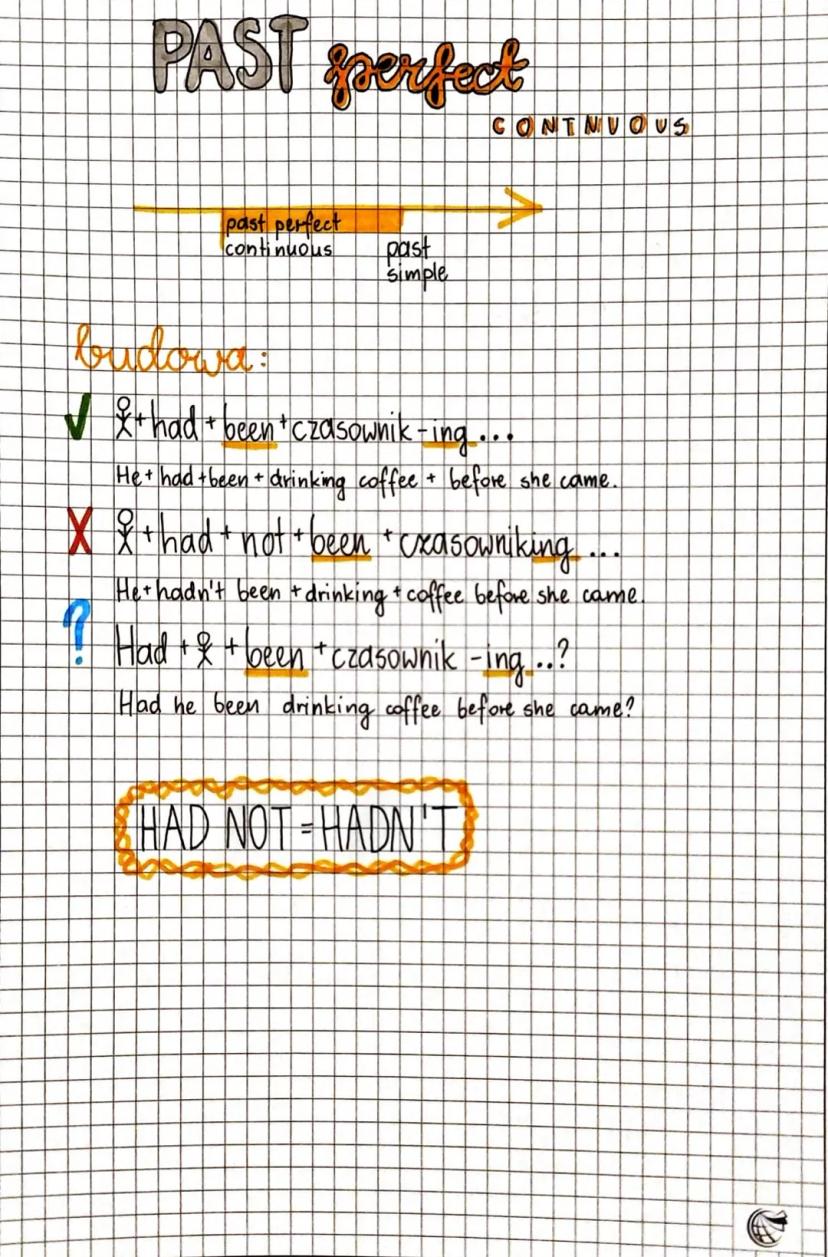 PAST perfect
CONTINUOUS
past perfect
continuous
past
simple
budowa:
+ had + been + czasownik -ing...
He + had + been + drinking coffee + before she came.
X + had + not + been + czasowniking ...
He + hadn't been + drinking + coffee before she came.
? Had + + been + czasownik -ing ..?
Had he been drinking coffee before she came?
HAD NOT = HADN'T